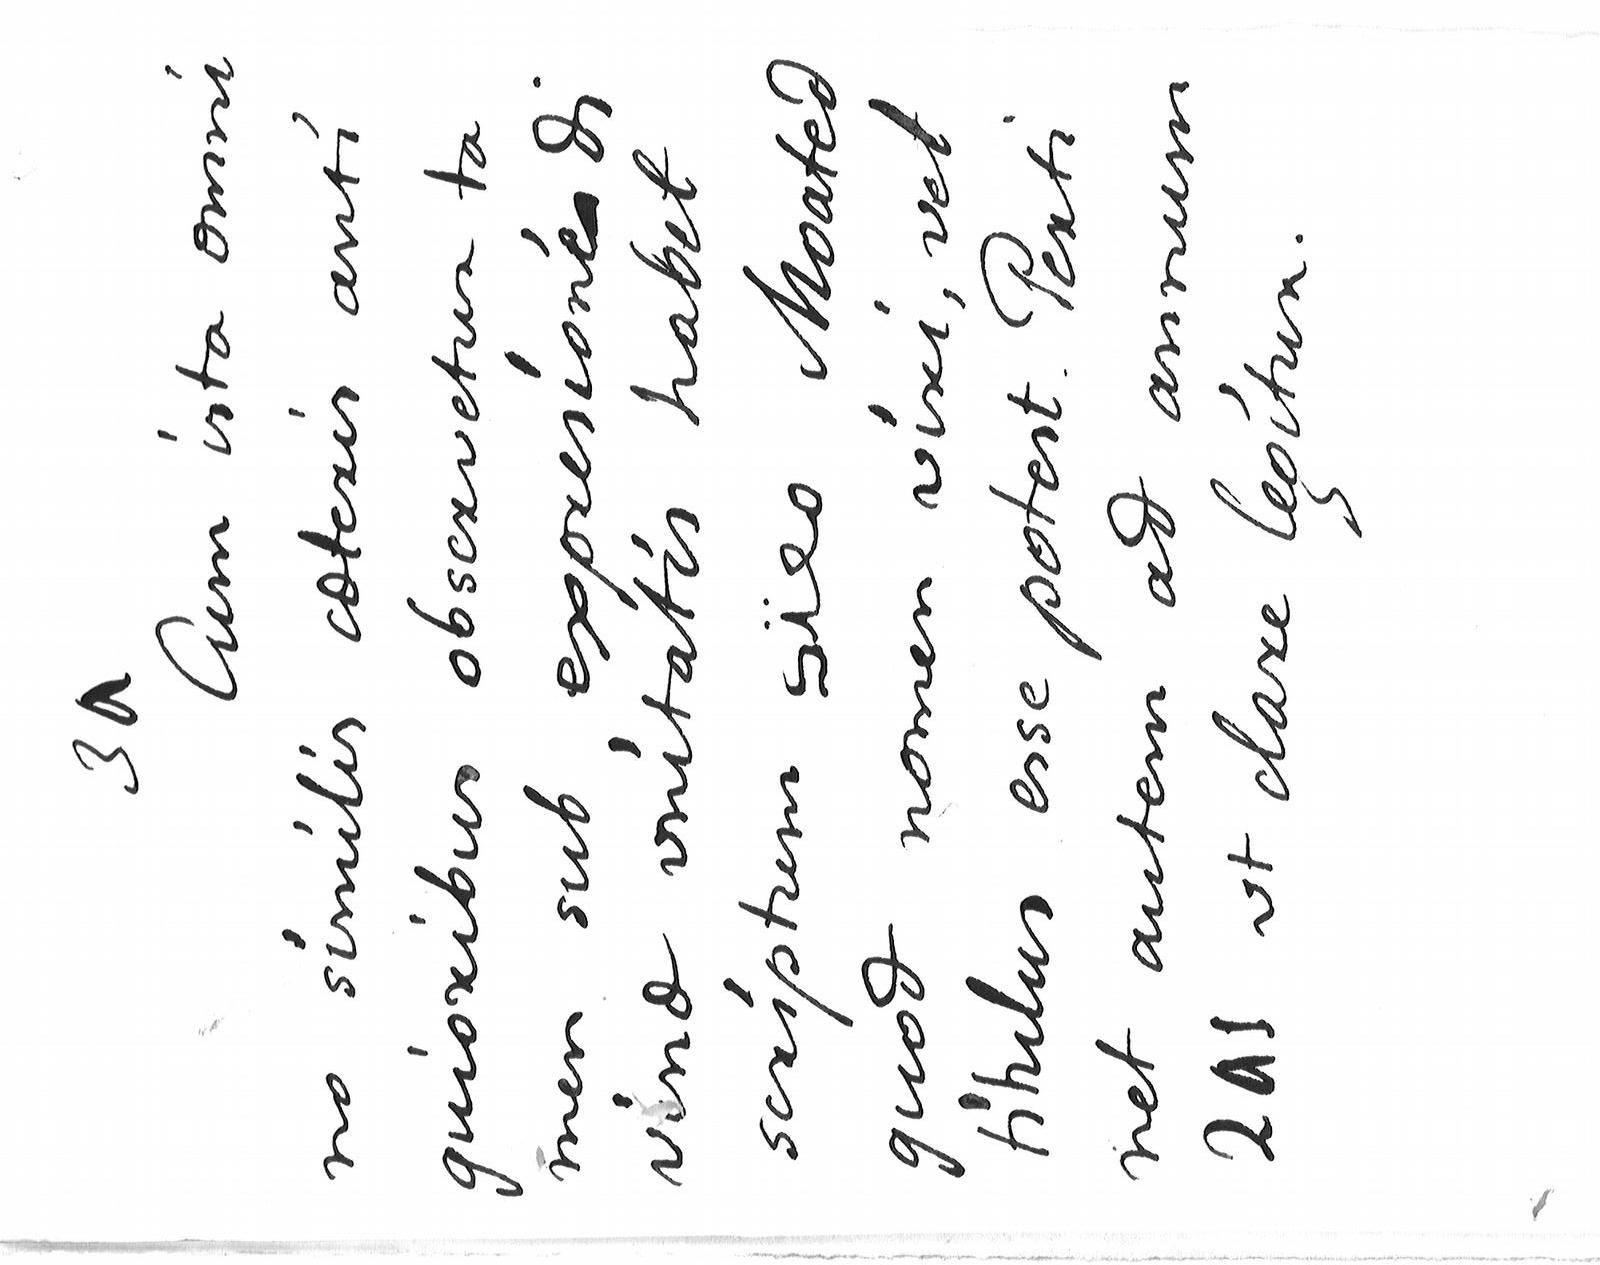 Cum ista omni
no similis ceteris anti
quioribus observetur ta
men sub expresione di
vina vnitatis habet
scriptum Moated
quod nomen viri, vel
titulus esse potest. Perti
net autem ad annum
vt clare legitur.